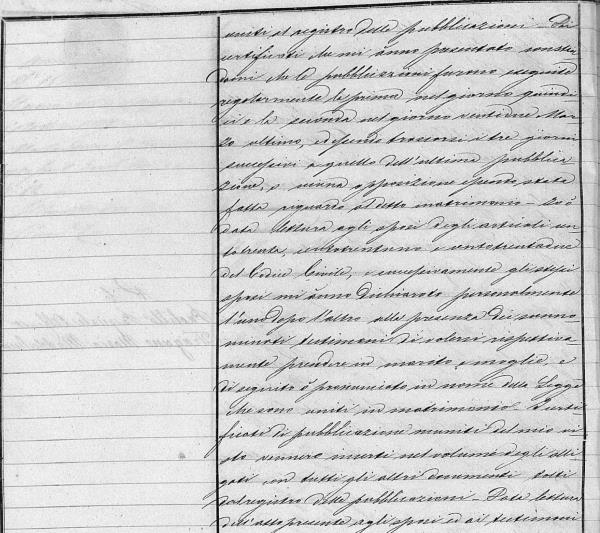 uniti al registro delle pubblicazioni — Dai
certificati che mi ànno presentato constan
domi che le pubblicazioni furono eseguite
regolarmente la prima nel giorno quindi
ci e la seconda nel giorno ventidue Mar
zo ultimo, ed essendo trascorsi i tre giorni
successivi a quello dell'ultima pubblica
zione, e niuna opposizione essendo stata
fatta riguardo al detto matrimonio — Ho
data lettura agli sposi degli articoli cen
totrenta, centotrentuno e centotrentadue
del Codice Civile, e successivamente gli stessi
sposi mi ànno dichiarato personalmente
l'uno dopo l'altro alla presenza dei sunno
minati testimoni di volersi rispettiva
mente prendere in marito e moglie, e
di seguito ò pronunciato in nome della Legge
che sono uniti in matrimonio. I certi
ficati di pubblicazione muniti del mio vi
sto vennero inserti nel volume degli alle
gati, con tutti gli altri documenti tolti
dal registro delle pubblicazioni — Data lettura
dell'atto presente agli sposi ed ai testimoni